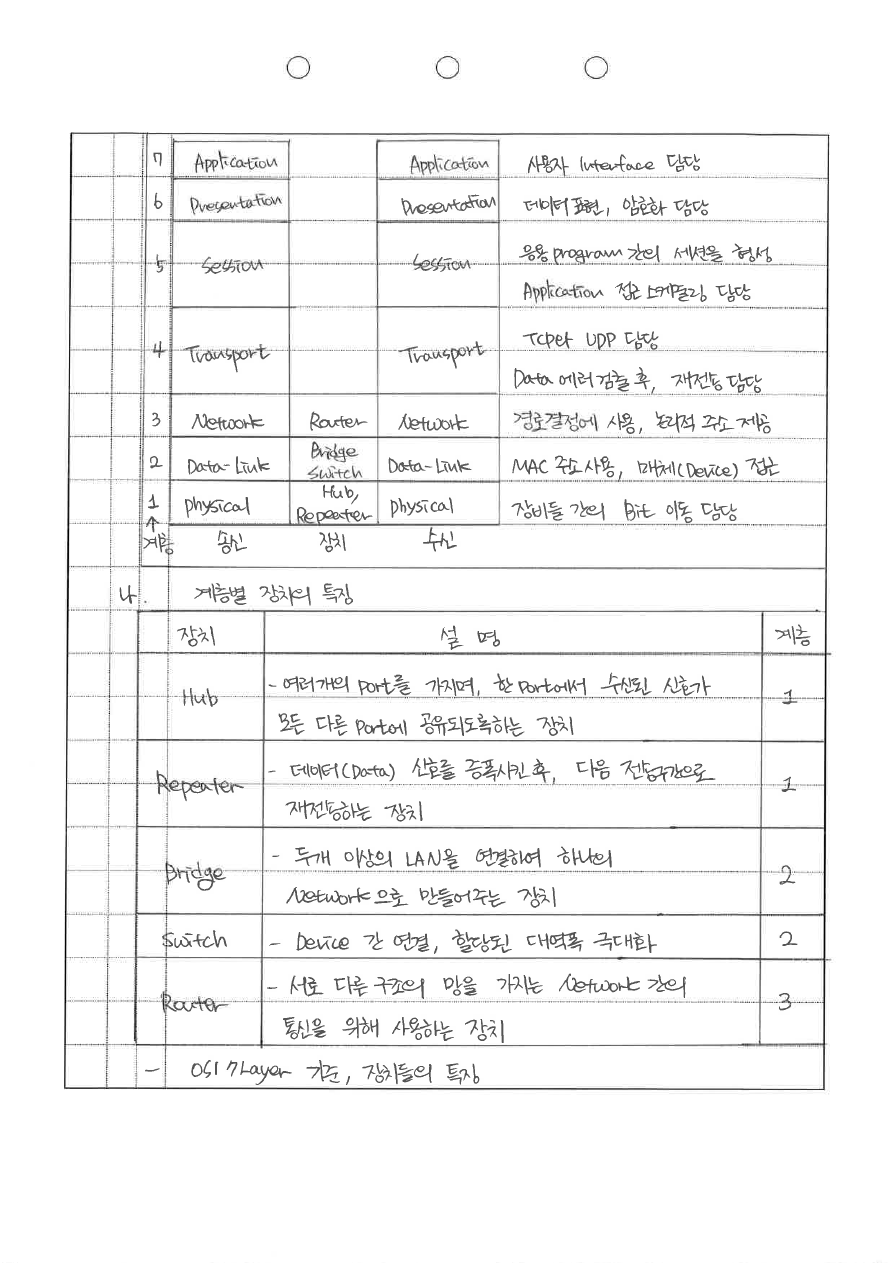 7 Application Application 사용자 Interface 담당
6 Presentation Presentation 데이터 표현, 암호화 담당
5 Session Session 응용 program 간의 세션을 형성
Application 접근 스케쥴링 담당
4 Transport Transport TCP와 UDP 담당
Data 에러 검출 후, 재전송 담당
3 Network Router Network 경로결정에 사용, 논리적 주소 제공
2 Data-Link Bridge Switch Data-Link MAC 주소 사용, 매체(Device) 접근
1 physical Hub, Repeater physical 장비들 간의 Bit 이동 담당
↑
계층 송신 장치 수신
나. 계층별 장치의 특징
장치 설명 계층
Hub - 여러개의 port를 가지며, 한 Port에서 수신된 신호가 1
모든 다른 Port에 공유되도록하는 장치
Repeater - 데이터(Data) 신호를 증폭시킨 후, 다음 전송구간으로 1
재전송하는 장치
Bridge - 두개 이상의 LAN을 연결하여 하나의 2
Network으로 만들어주는 장치
Switch - Device 간 연결, 할당된 대역폭 극대화 2
Router - 서로 다른 구조의 망을 가지는 Network 간의 3
통신을 위해 사용하는 장치
- OSI 7 Layer 기준, 장치들의 특징